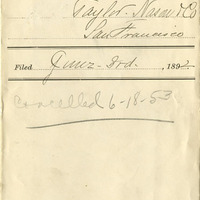 Taylor, Nason & Co
San Francisco
Filed June 3rd, 1892
Cancelled 6-18-53